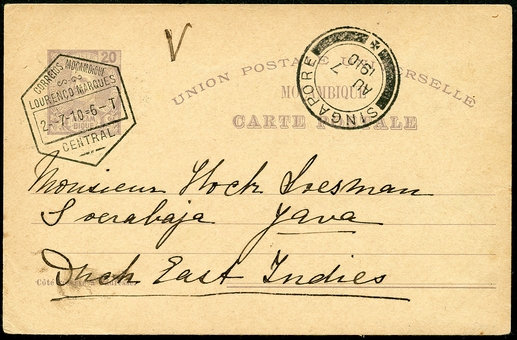 V
20
CORREIOS MOÇAMBIQUE
LOURENÇO MARQUES
2-7-10-6-T
CENTRAL
SINGAPORE
AU 7
1910
UNION POSTALE UNIVERSELLE
MOÇAMBIQUE
CARTE POSTALE
Monsieur Hock Loesman
Soerabaja Java
Duch East Indies
Côté